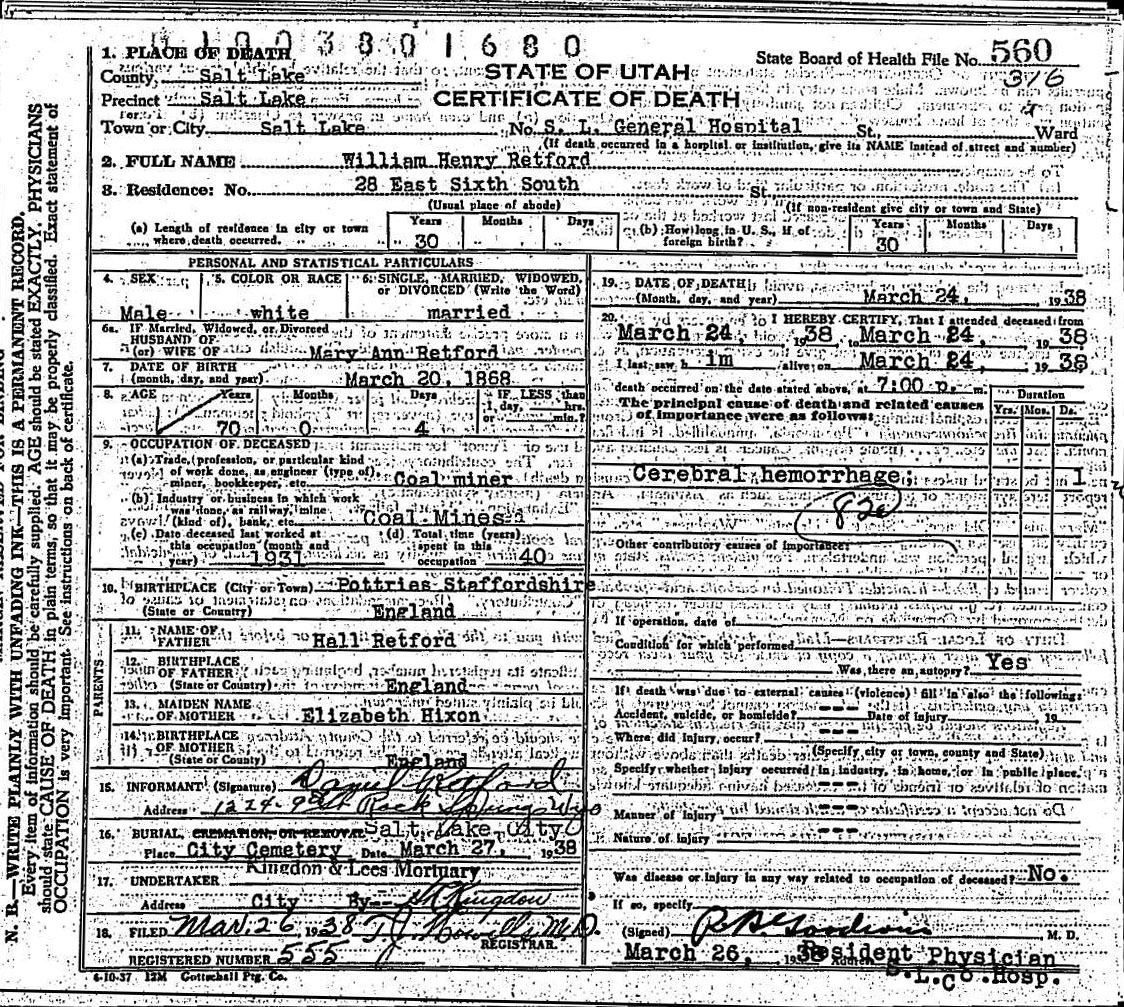 1003801680
1. PLACE OF DEATH
State Board of Health File No. 560
316
County Salt Lake
STATE OF UTAH
Precinct Salt Lake
CERTIFICATE OF DEATH
Town or City Salt Lake No. S. L. General Hospital St., Ward
(If death occurred in a hospital or institution, give its NAME instead of street and number)
2. FULL NAME William Henry Retford
3. Residence: No. 28 East Sixth South St.
(Usual place of abode) (If non-resident give city or town and State)
(a) Length of residence in city or town where death occurred. Years 30 Months Days
(b) How long in U. S., if of foreign birth? Years 30 Months Days
PERSONAL AND STATISTICAL PARTICULARS
4. SEX Male
5. COLOR OR RACE white
6. SINGLE, MARRIED, WIDOWED, or DIVORCED (Write the Word) married
6a. IF Married, Widowed, or Divorced
HUSBAND OF
(or) WIFE OF Mary Ann Retford
7. DATE OF BIRTH
(month, day, and year) March 20, 1868
8. AGE Years 70 Months 0 Days 4 IF LESS than 1 day, hrs. or min.?
9. OCCUPATION OF DECEASED
(a) Trade, profession, or particular kind
of work done, as engineer (type of),
miner, bookkeeper, etc. Coal miner
(b) Industry or business in which work
was done, as railway, mine
(kind of), bank, etc. Coal Mines
(c) Date deceased last worked at
this occupation (month and
year) 1931
(d) Total time (years)
spent in this
occupation 40
10. BIRTHPLACE (City or Town) Pottries Staffordshire
(State or Country) England
PARENTS
11. NAME OF
FATHER Hall Retford
12. BIRTHPLACE
OF FATHER
(State or Country) England
13. MAIDEN NAME
OF MOTHER Elizabeth Hixon
14. BIRTHPLACE
OF MOTHER
(State or Country) England
15. INFORMANT (Signature) Daniel Retford
Address 1224-9th St Rock Springs Wyo
16. BURIAL, CREMATION, OR REMOVAL Salt Lake City
Place City Cemetery Date March 27, 1938
17. UNDERTAKER Kingdon & Lees Mortuary
Address City By
18. FILED Mar. 26, 1938 M.D.
REGISTRAR.
REGISTERED NUMBER 555
4-10-37 12M Gottschall Ptg. Co.
19. DATE OF DEATH
(Month, day, and year) March 24, 1938
20. I HEREBY CERTIFY, That I attended deceased from
March 24, 1938, to March 24, 1938
I last saw him alive on March 24, 1938
death occurred on the date stated above, at 7:00 p. m.
The principal cause of death and related causes
of importance were as follows:
Duration
Yrs. Mos. Ds.
Cerebral hemorrhage; 1
82a
Other contributory causes of importance:
If operation, date of
Condition for which performed
Was there an autopsy? Yes
If death was due to external causes (violence) fill in also the following:
Accident, suicide, or homicide? --- Date of injury 19
Where did injury occur? ---
(Specify city or town, county and State)
Specify whether injury occurred in industry, in home, or in public place.
---
Manner of injury ---
Nature of injury ---
Was disease or injury in any way related to occupation of deceased? No.
If so, specify
(Signed) M. D.
March 26, 1938 Address Resident Physician
S.L.Co.Hosp.
N. B.—WRITE PLAINLY WITH UNFADING INK—THIS IS A PERMANENT RECORD.
Every item of information should be carefully supplied. AGE should be stated EXACTLY. PHYSICIANS
should state CAUSE OF DEATH in plain terms, so that it may be properly classified. Exact statement of
OCCUPATION is very important. See instructions on back of certificate.